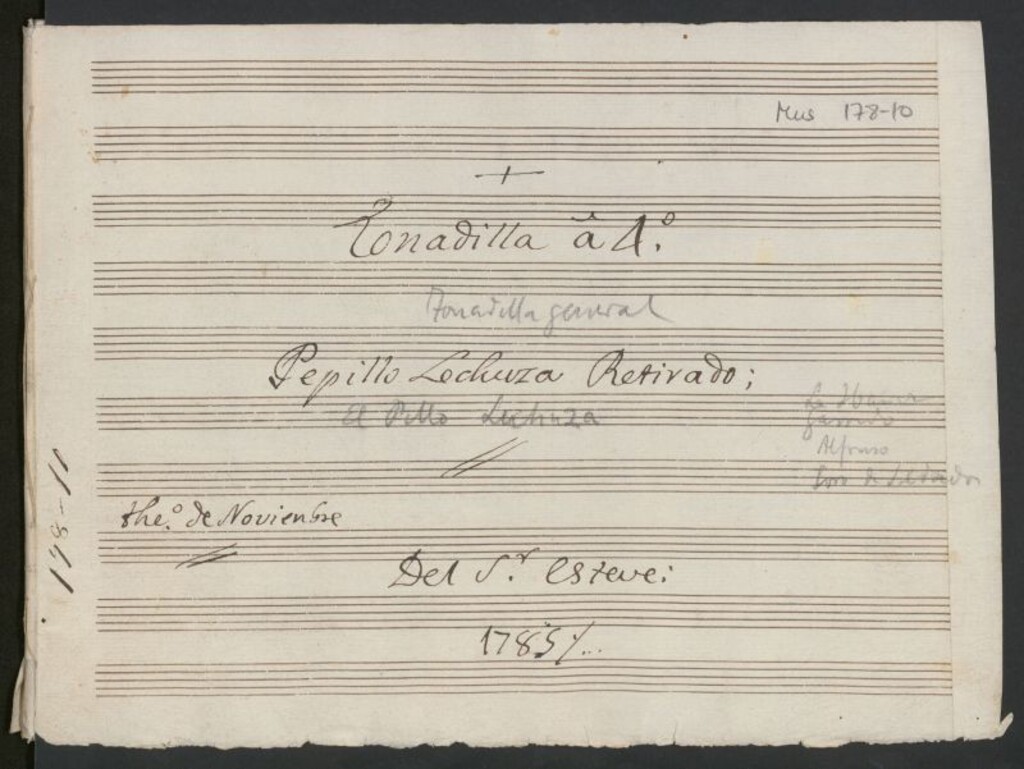 Mus 178-10
+
Tonadilla â 4.º
Tonadilla general
Pepillo Lechuza Retirado;
El Pillo Lechuza
Garrido
Alfonso
the.º de Novienbre
Del S.r Esteve:
1785/...
178-11